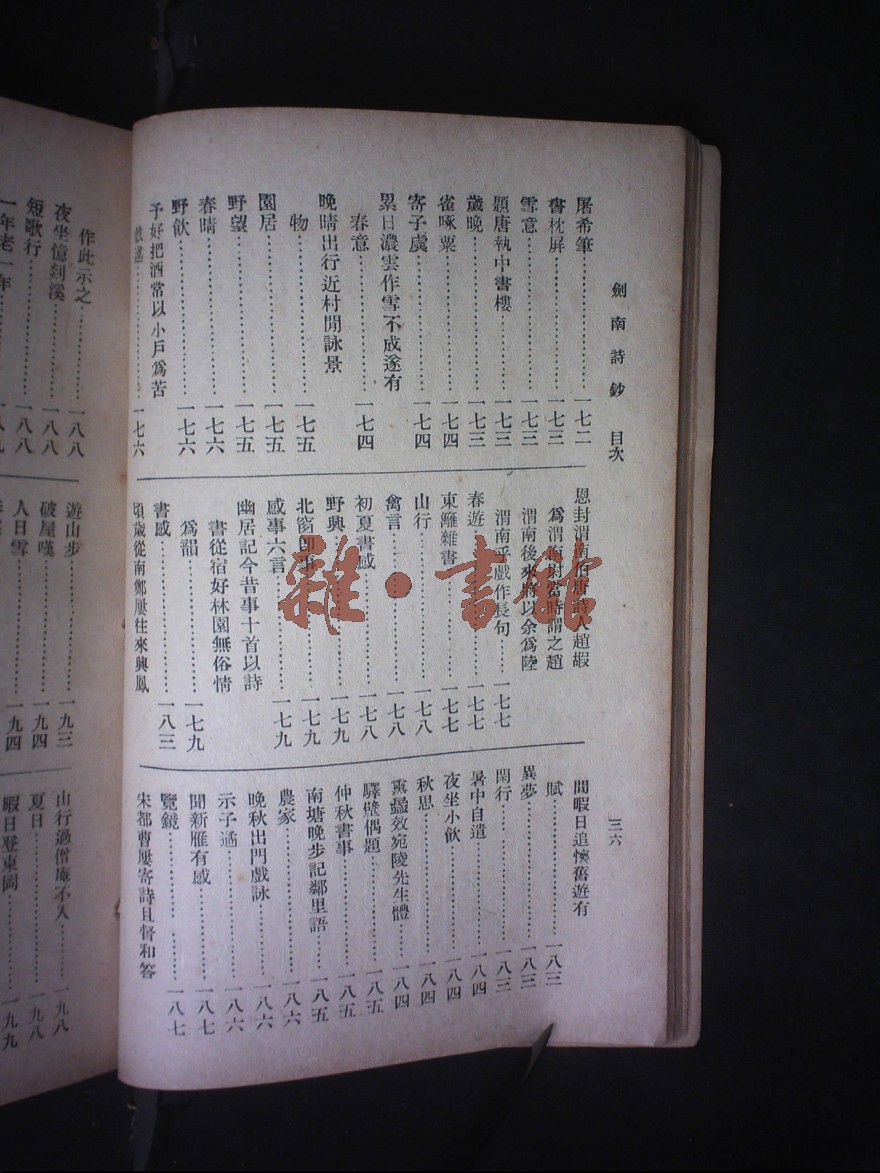 劍南詩鈔 目次
三六
屠希筆……一七二
書枕屏……一七三
雪意……一七三
題唐執中書樓……一七三
歲晚……一七三
雀啄粟……一七四
寄子虡……一七四
累日濃雲作雪不成遂有
春意……一七四
晚晴出行近村閒詠景
物……一七五
園居……一七五
野望……一七五
春晴……一七六
野飲……一七六
予好把酒常以小戶爲苦
戲述……一七六
恩封渭南伯唐詩人趙嘏
爲渭南尉當時謂之趙
渭南後來將以余爲陸
渭南乎戲作長句……一七七
春遊……一七七
東籬雜書……一七七
山行……一七八
禽言……一七八
初夏書感……一七八
野興……一七九
北窗卽事……一七九
感事六言……一七九
幽居記今昔事十首以詩
書從宿好林園無俗情
爲韻……一七九
書感……一八三
頃歲從南鄭屢往來興鳳
間暇日追懷舊遊有
賦……一八三
異夢……一八三
閑行……一八三
暑中自遣……一八四
夜坐小飲……一八四
秋思……一八四
薰蟁效宛陵先生體……一八四
驛壁偶題……一八五
仲秋書事……一八五
南塘晚步記鄰里語……一八五
農家……一八六
晚秋出門戲詠……一八六
示子遹……一八六
聞新雁有感……一八七
覽鏡……一八七
宋都曹屢寄詩且督和答
作此示之……一八八
夜坐憶剡溪……一八八
短歌行……一八八
一年老一年……一八九
遊山步……一九三
破屋嘆……一九四
人日雪……一九四
山行過僧庵不入……一九八
夏日……一九八
暇日登東岡……一九九
雜·書館